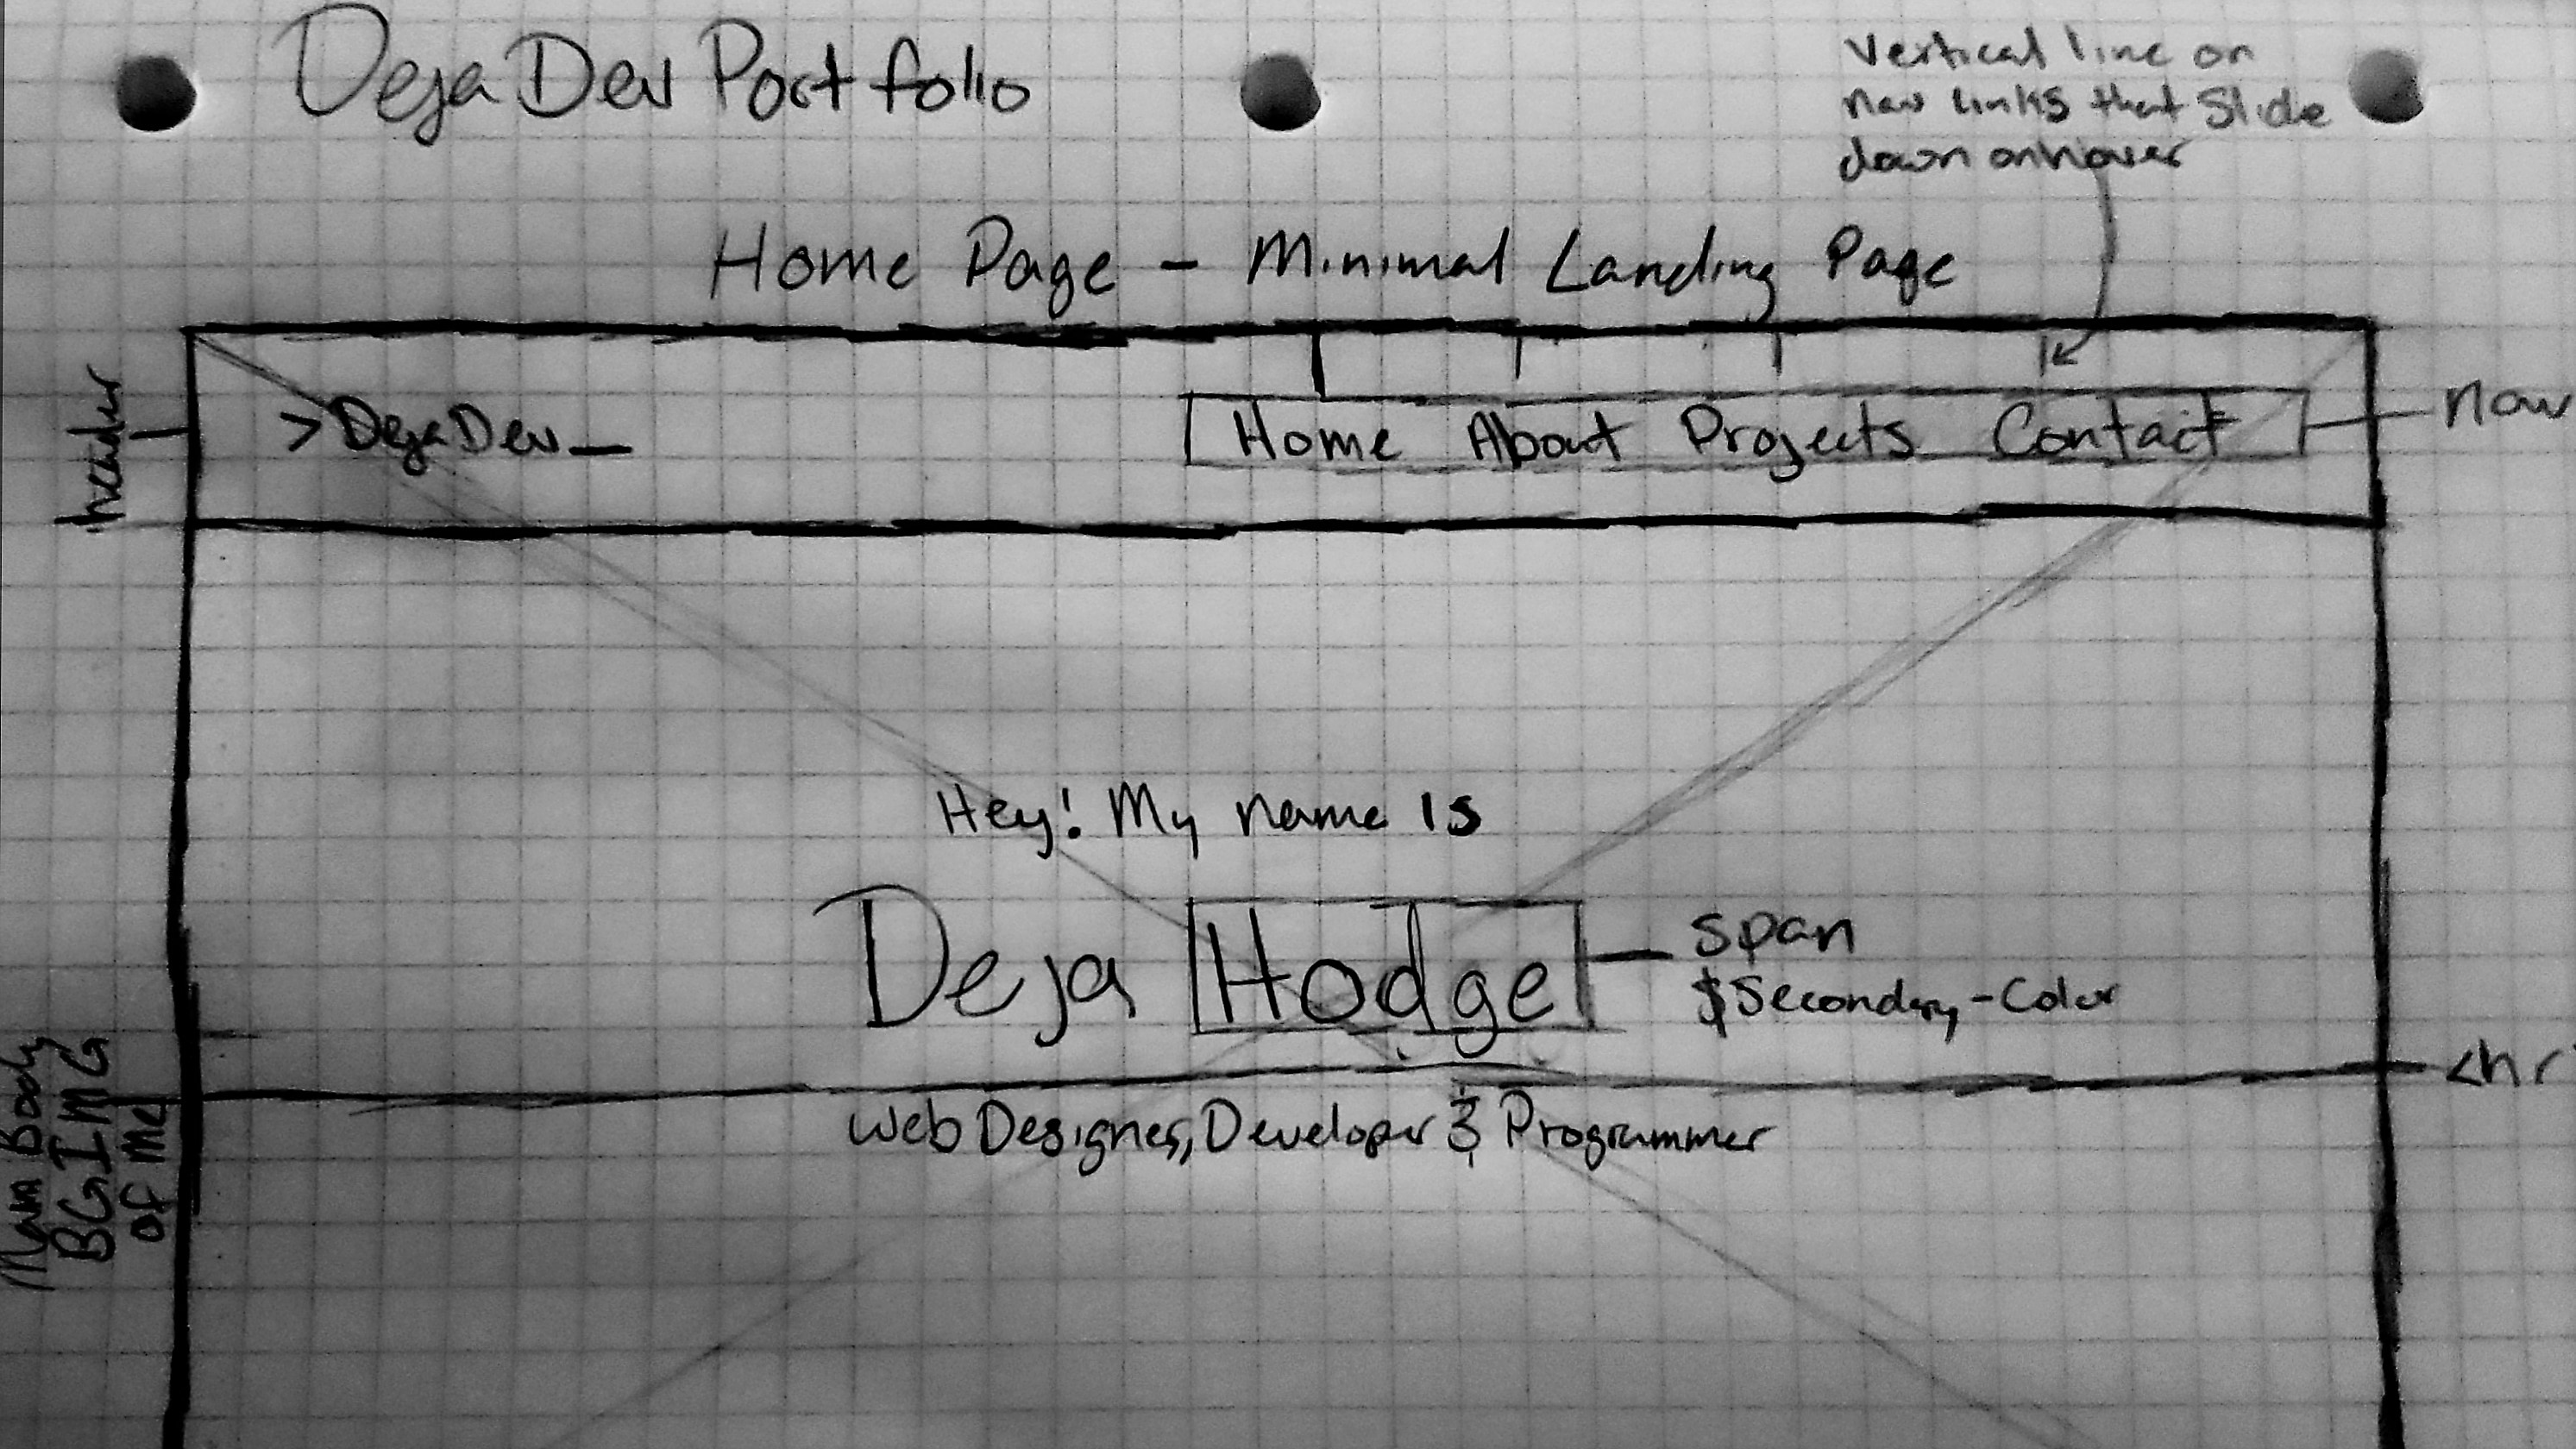 Deja Dev Portfolio
Vertical line on
nav links that Slide
down on hover
Home Page - Minimal Landing Page
header
>DejaDev_
Home About Projects Contact
nav
Hey! My name is
Deja Hodge
span
$Secondary-Color
<hr
Web Designer, Developer & Programmer
Main Body
BG IMG
of me